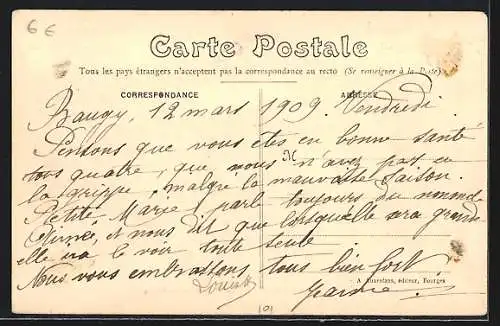 6 €
Carte Postale
Tous les pays étrangers n'acceptent pas la correspondance au recto (Se renseigner à la Poste)
CORRESPONDANCE ADRESSE
Baugy, 12 mars 1909. Vendredi
Pensons que vous êtes en bonne santé
tous quatre, que vous n'avez pas eu
la grippe, malgré la mauvaise saison.
Petite Marie parle toujours du
et nous dit que lorsqu'elle sera grande
elle ira le voir toute seule
Nous vous embrassons tous bien fort.
M
A. éditeur, Bourges